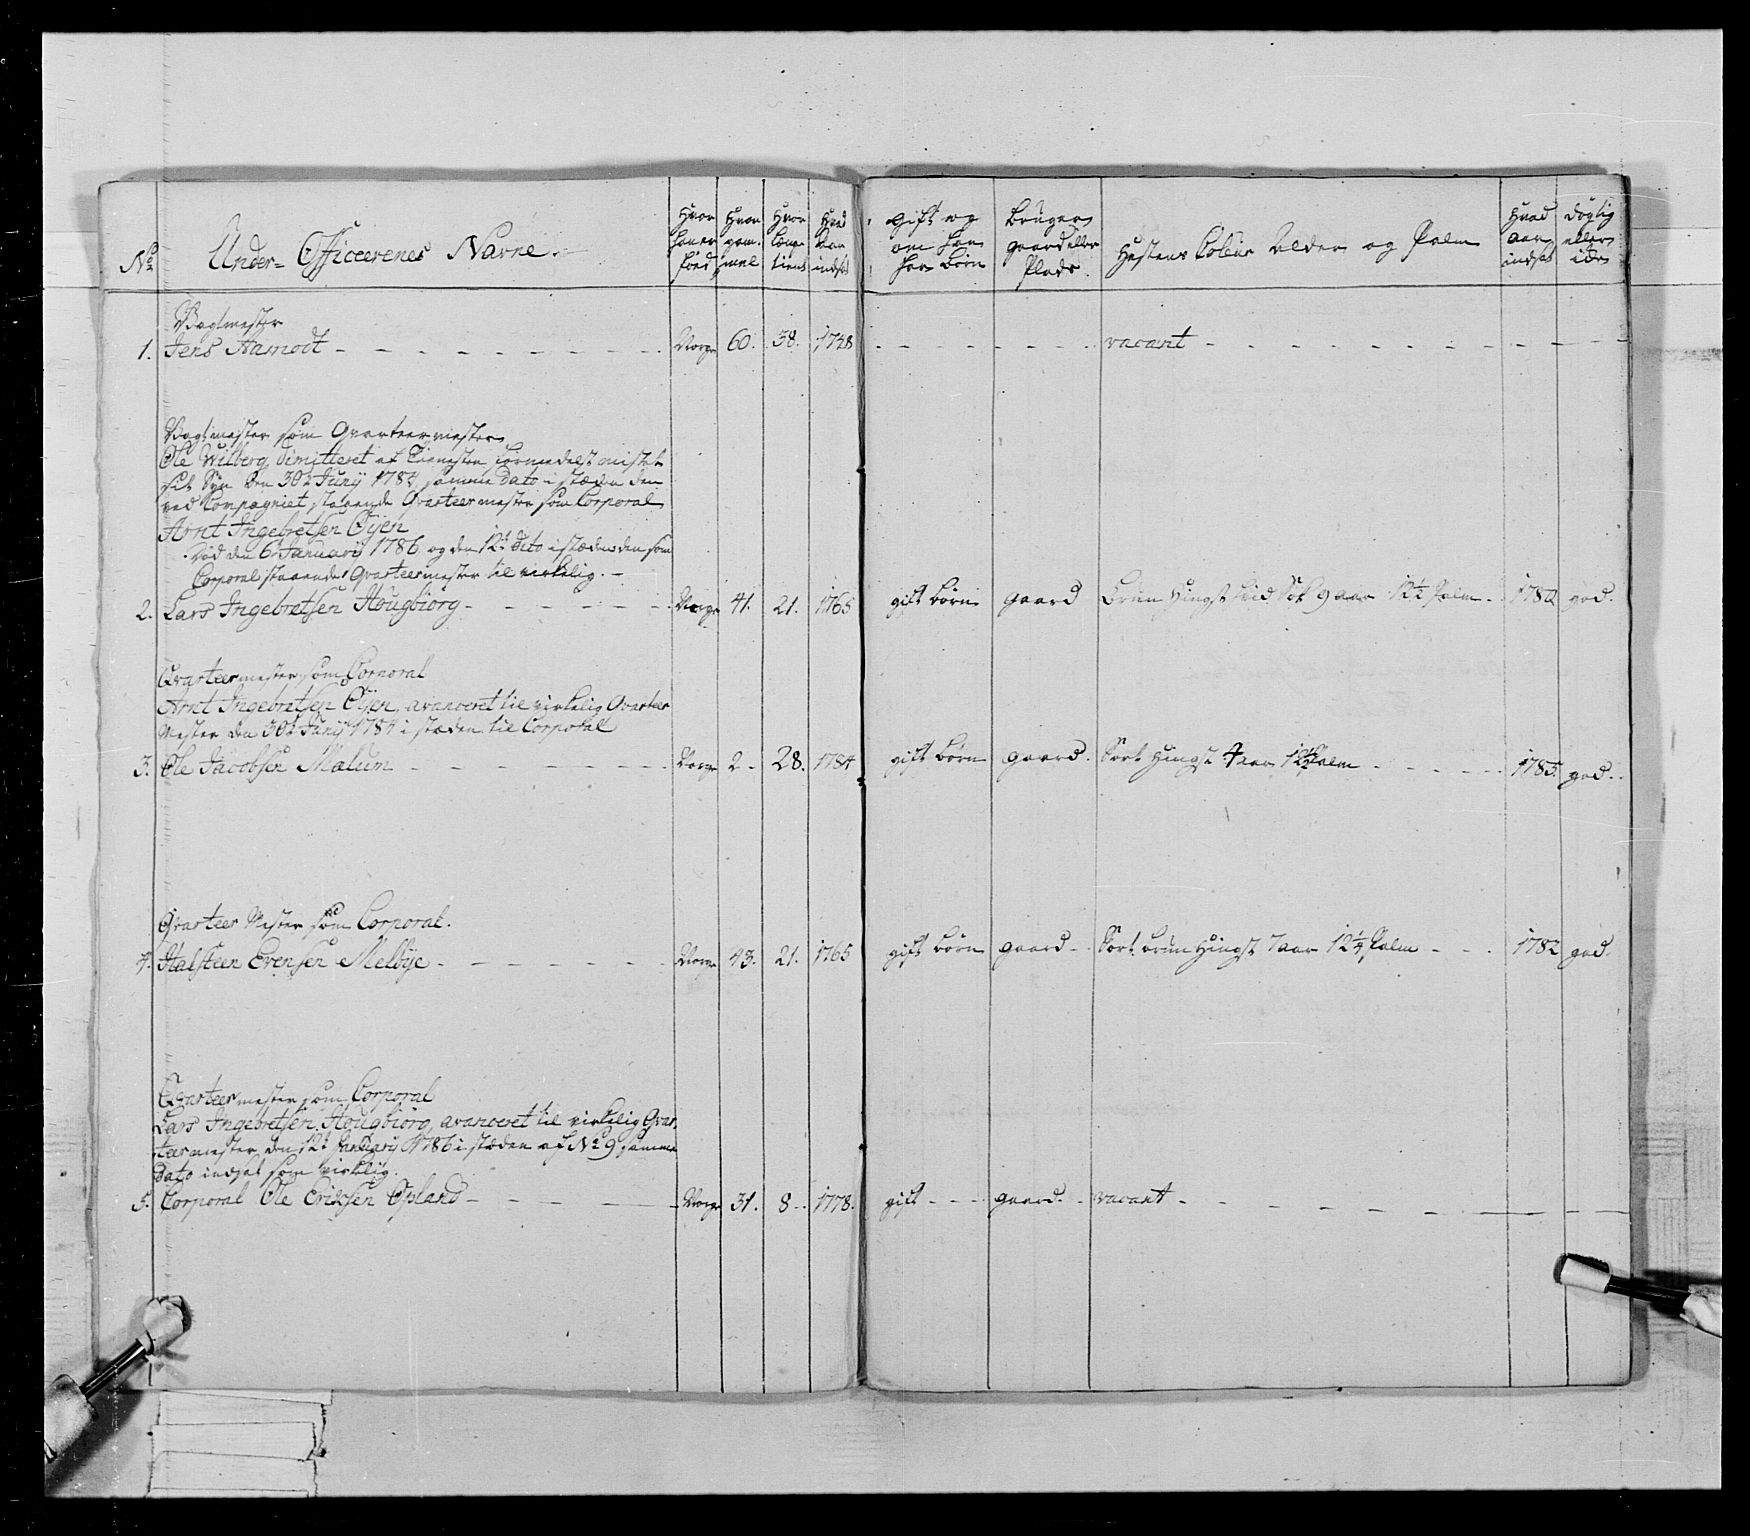 No
Under-Officeerenes Navne.
Hvor han er föed
Hvor gam- mel
Hvor længe tient
Hvad aar indsat
gift og om han har börn
bruger gaard eller Plads
Hestens Coleur Alder og Palm
Hvad aar indsat
dögtig eller ide
Vagtmester
1. Jens Aamodt - - - Norge 60. 38. 1748 - - - vacant - - -
Vagtmester som Qvarteermester
Ole Wilberg, dimitteret af Tienesten formedelst mistet
sit Syn den 30te Junij 1784, samme dato i stæden den
ved Compagniet staaende Qvarteermester som Corporal
Arnt Ingebretsen Öyen
Död den 6te Januarij 1786 og den 12te dito i stæden den som
Corporal staaende Qvarteermester til virkelig. -
2. Lars Ingebretsen Hougbiörg - - - Norge 41. 21. 1765 gift börn gaard brun Hingst 9 aar 12½ Palm - 1780 god.
Qvarteermester som Corporal
Arnt Ingebretsen Öijen, avanceret til virkelig Qvarteer
Mester den 30te Junij 1784 i stæden til Corporal
3. Ole Jacobsen Mælum - - - Norge 2 - 28. 1784 gift börn gaard. Sort Hingst 4 aar 12½ Palm - - - 1785. god.
Qvarteer Mester som Corporal.
4. Halsteen Evensen Melbÿe - - - Norge 43. 21. 1765 gift börn gaard - Sort brun Hingst 7 aar 12¼ Palm - - - 1782 god.
Qvarteermester som Corporal
Lars Ingebretsen Hougbiörg, avanceret til virkelig Qvar-
teermester den 12te Januarij 1786 i stæden af No 9 samme
Dato indsat som virkelig.
5. Corporal Ole Eriksen Opland - - - Norge 31. 8 - 1778. gift - - - gaard. - vacant - - -